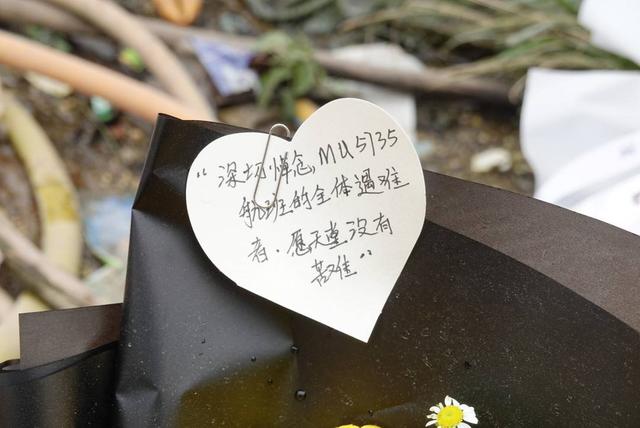 “深切悼念,MU5735
航班的全体遇难
者.愿天堂没有
苦难”